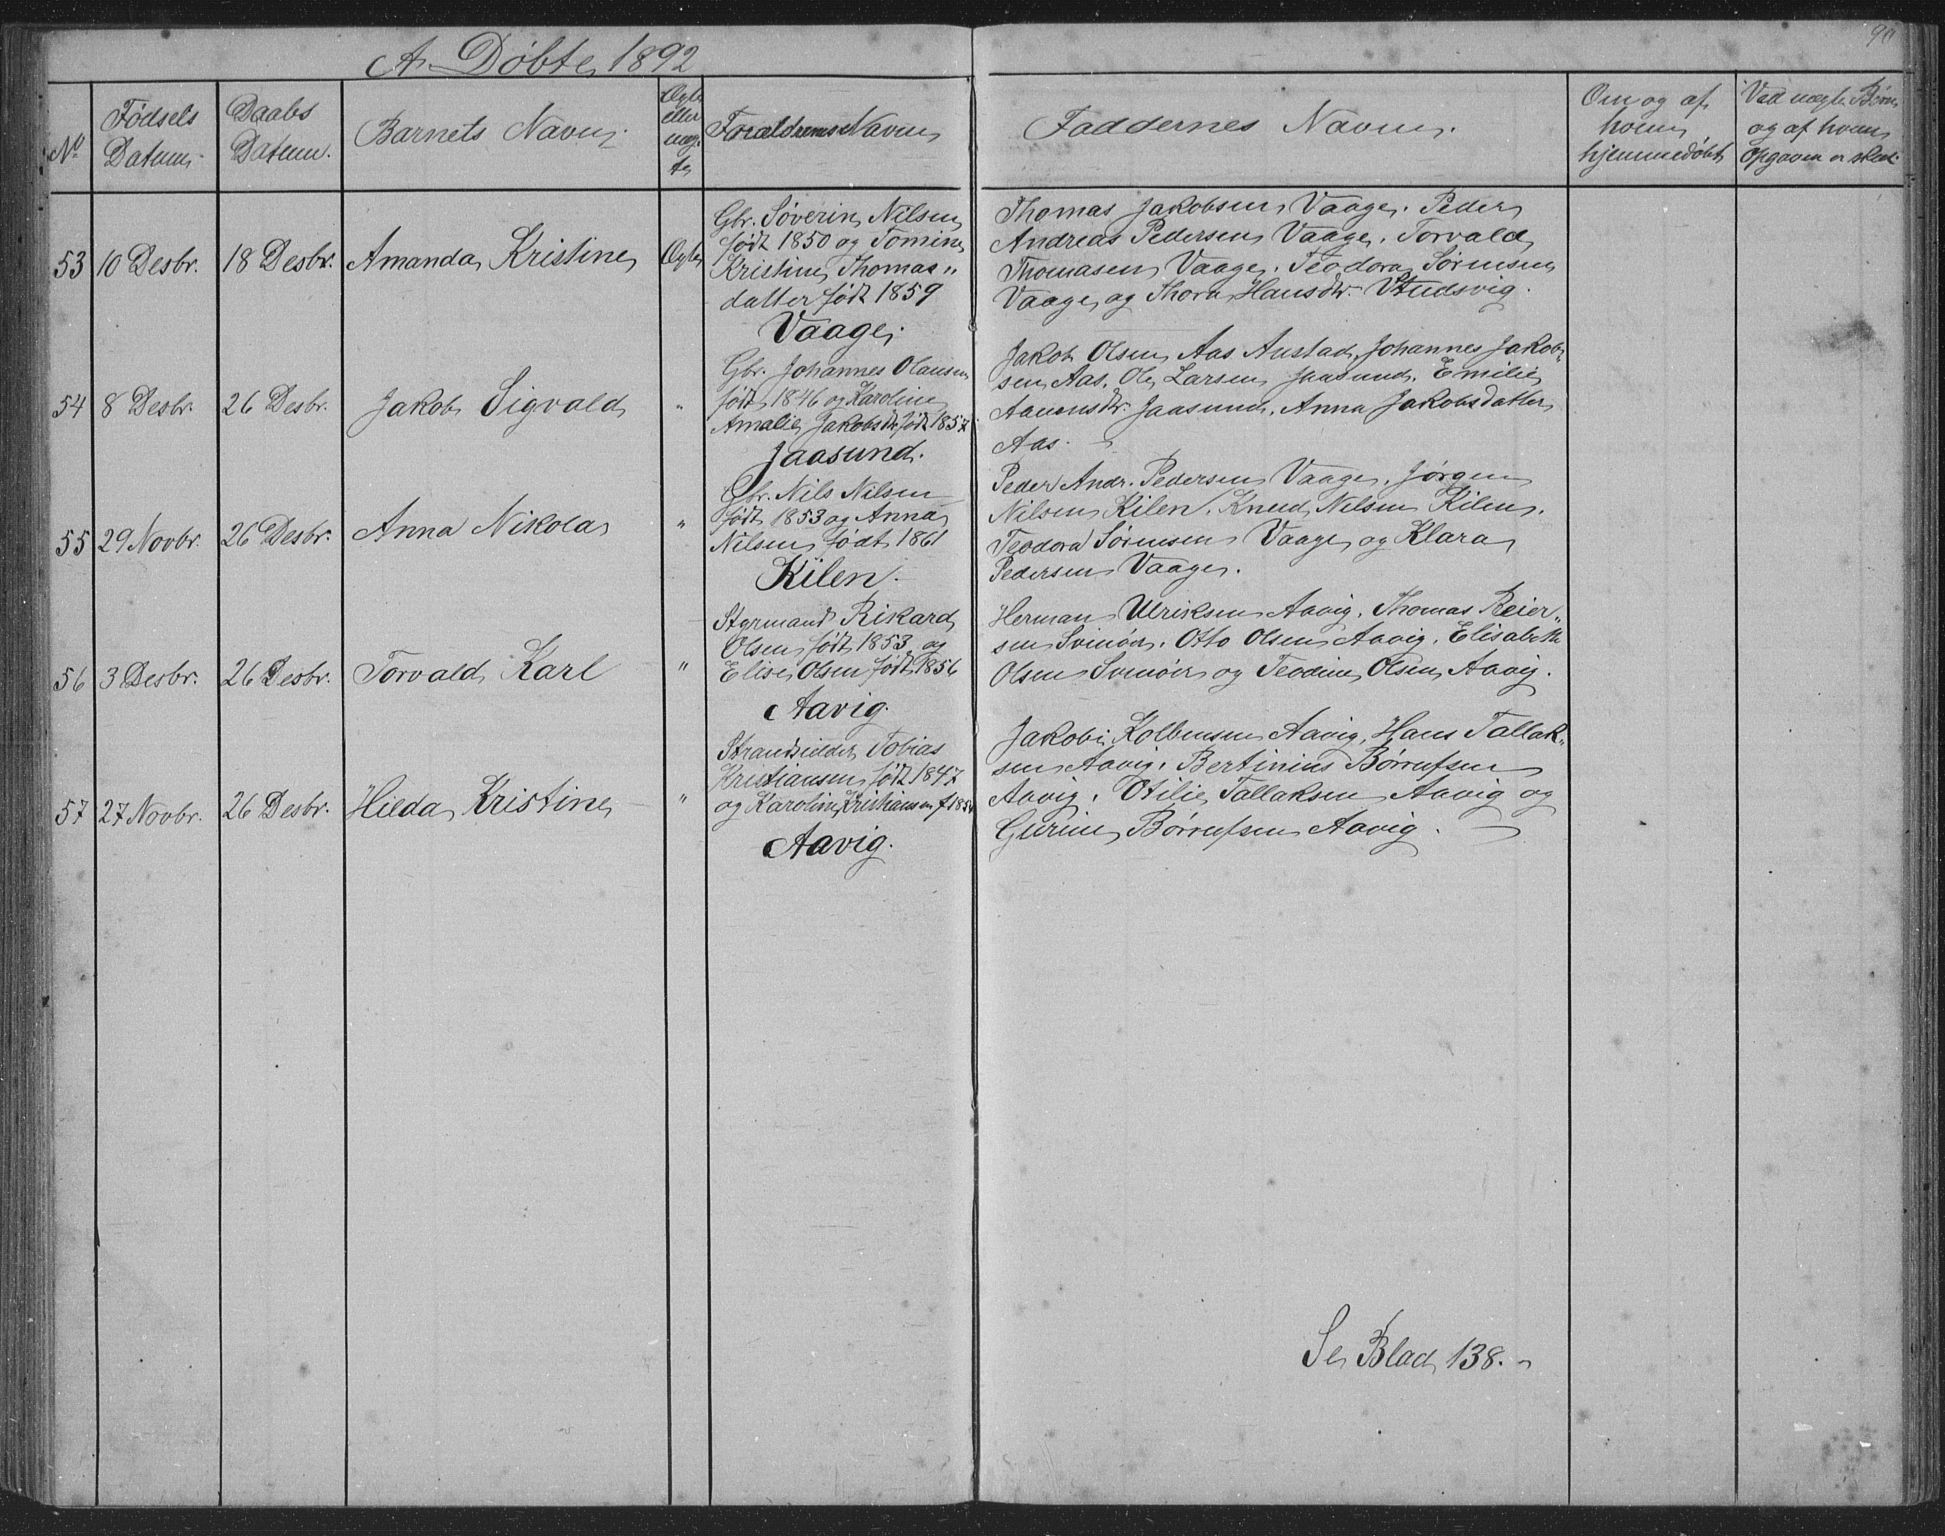 90
A. Døbte 1892
No
Fødsels
Datum.
Daabs
Datum.
Barnets Navn.
Ægte
eller
uæg-
te
Forældrenes Navn
Faddernes Navn.
Om og af
hvem
hjemmedøbt
Ved uægte Børn
og af hvem
Opgaven er skeet.
53 10 Desbr. 18 Desbr. Amanda Kristine Ægte
Gbr. Søverin Nilsen
født 1850 og Tomine
Kristine Thomas"
datter født 1859
Vaage.
Thomas Jakobsen Vaage. Peder
Andreas Pedersen Vaage. Torvald
Thomasen Vaage. Teodora Sørensen
Vaage og Thora Hansdtr. Udsvig.
54 8 Desbr. 26 Desbr. Jakob Sigvald "
Gbr. Johannes Olausen
født 1846 og Karoline
Amalie Jakobsdtr født 1857
Jaasund.
Jakob Olsen Aas Austad, Johannes Jakob"
sen Aas. Ole Larsen Jaasund. Emilie
Aanonsdtr. Jaasund. Anna Jakobsdatter
Aas.
55 29 Novbr. 26 Desbr. Anna Nikola "
Gbr. Nils Nilsen
født 1853 og Anna
Nilsen født 1861
Kilen.
Peder Andr. Pedersen Vaage. Jørgen
Nilsen Kilen. Knud Nilsen Kilen.
Teodora Sørensen Vaage og Klara
Pedersen Vaage.
56 3 Desbr. 26 Desbr. Torvald Karl "
Styrmand Rikard
Olsen født 1853 og
Elise Olsen født 1856
Aavig.
Herman Ulriksen Aavig. Thomas Reier"
sen Svinør. Otto Olsen Aavig. Elisabeth
Olsen Svinør og Teodine Olsen Aavig.
57 27 Novbr. 26 Desbr. Hilda Kristine "
Strandsidder Tobias
Kristiansen født 1847
og Karoline Kristiansen f. 185
Aavig.
Jakobi Kolbensen Aavig, Hans Tallak"
sen Aavig. Bertinius Børrufsen
Aavig. Otilie Tallaksen Aavig og
Gurine Børrufsen Aavig.
Se Blad 138.